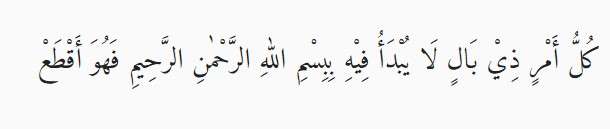 كُلُّ أَمْرٍ ذِيْ بَالٍ لَا يُبْدَأُ فِيْهِ بِبِسْمِ اللهِ الرَّحْمٰنِ الرَّحِيمِ فَهُوَ أَقْطَعْ